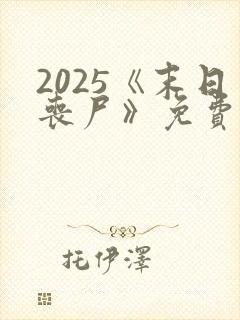 2025《末日
丧尸》免費
托伊澤